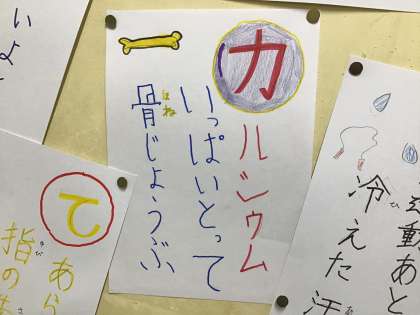 動あと
冷えた汗
ひ
カルシウム
いっぱいとって
骨じょうぶ
ほね
て
あら
指の
いよ